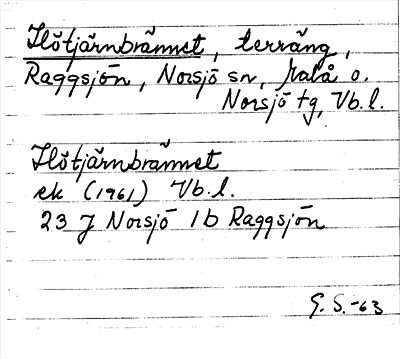 Flötjärnbrännet, terräng,
Raggsjön, Norsjö sn, Malå o.
Norsjö tg, Vb. l.
Flötjärnbrännet
ek (1961) Vb. l.
23 J Norsjö 1 b Raggsjön
G. S. -63